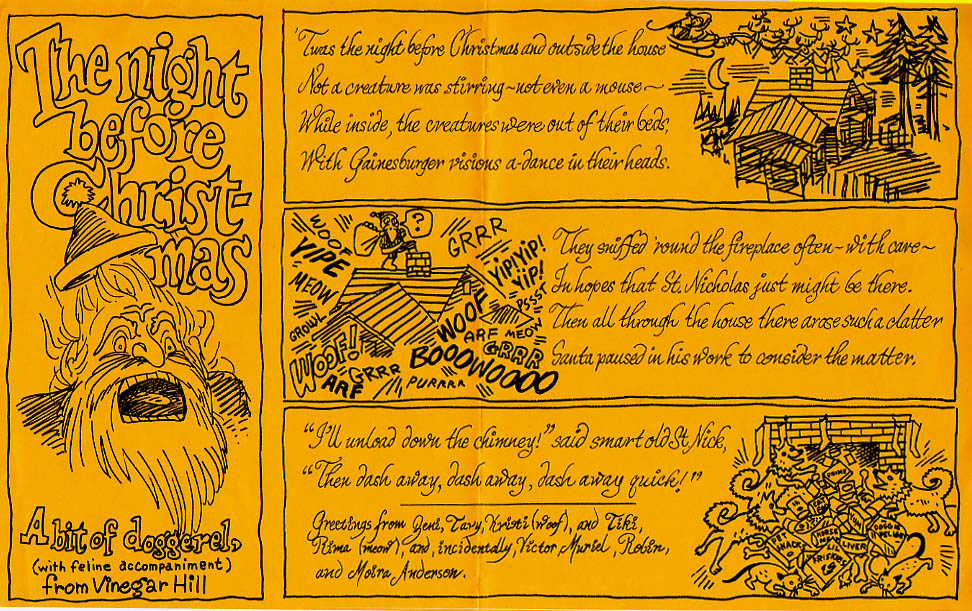 The night
before
Christ-
mas
A bit of doggerel,
(with feline accompaniment)
from Vinegar Hill
'Twas the night before Christmas and outside the house
Not a creature was stirring ~ not even a mouse ~
While inside, the creatures were out of their beds,
With Gainesburger visions a-dance in their heads.
WOOF
YIPE
MEOW
GROWL
WOOF!
ARF
GRRR
?
GRRR
YIPYIP!
YIP!
PSSST
WOOF
WOOF
ARF MEOW
GRRR
BOOOWOOOO
PURRRR
They sniffed 'round the fireplace often ~ with care ~
In hopes that St. Nicholas just might be there.
Then all through the house there arose such a clatter
Santa paused in his work to consider the matter.
"I'll unload down the chimney!" said smart old St. Nick,
"Then dash away, dash away, dash away quick!"
Greetings from Zeni, Tavy, Kristi (woof), and Tiki,
Rima (meow), and, incidentally, Victor, Muriel, Robin,
and Moira Anderson.
PRIME
PET
SNACK
HORSE
MEAT
LIL
FRISKIES
LIVER
DOGGIE